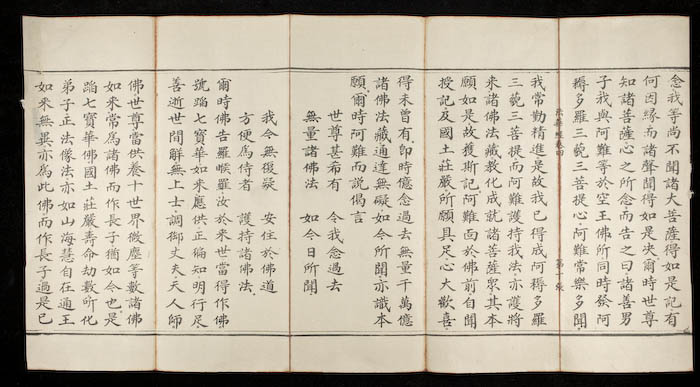 念我等尚不聞諸大菩薩得如是記有
何因緣而諸聲聞得如是決爾時世尊
知諸菩薩心之所念而告之曰諸善男
子我與阿難等於空王佛所同時發阿
耨多羅三藐三菩提心阿難常樂多聞
法華經卷四
我常勤精進是故我已得成阿耨多羅
三藐三菩提而阿難護持我法亦護將
來諸佛法藏教化成就諸菩薩眾其本
願如是故獲斯記阿難面於佛前自聞
授記及國土莊嚴所願具足心大歡喜
得未曾有即時憶念過去無量千萬億
諸佛法藏通達無礙如今所聞亦識本
願爾時阿難而說偈言
世尊甚希有 令我念過去
無量諸佛法 如今日所聞
我今無復疑 安住於佛道
方便為侍者 護持諸佛法
爾時佛告羅睺羅汝於來世當得作佛
號蹈七寶華如來應供正徧知明行足
善逝世間解無上士調御丈夫天人師
佛世尊當供養十世界微塵等數諸佛
如來常為諸佛而作長子猶如今也是
蹈七寶華佛國土莊嚴壽命劫數所化
弟子正法像法亦如山海慧自在通王
如來無異亦為此佛而作長子過是已